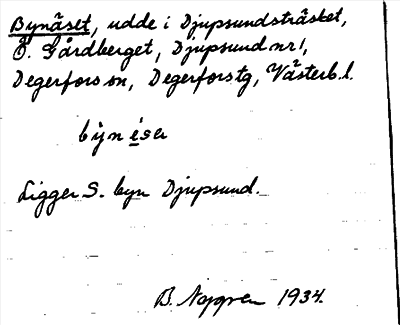 Bynäset, udde i Djupsundsträsket,
Ö. Gårdberget, Djupsund nr 1,
Degerfors sn, Degerfors tg, Västerb. l.
Ligger S. byn Djupsund.
B. Nygren 1934.